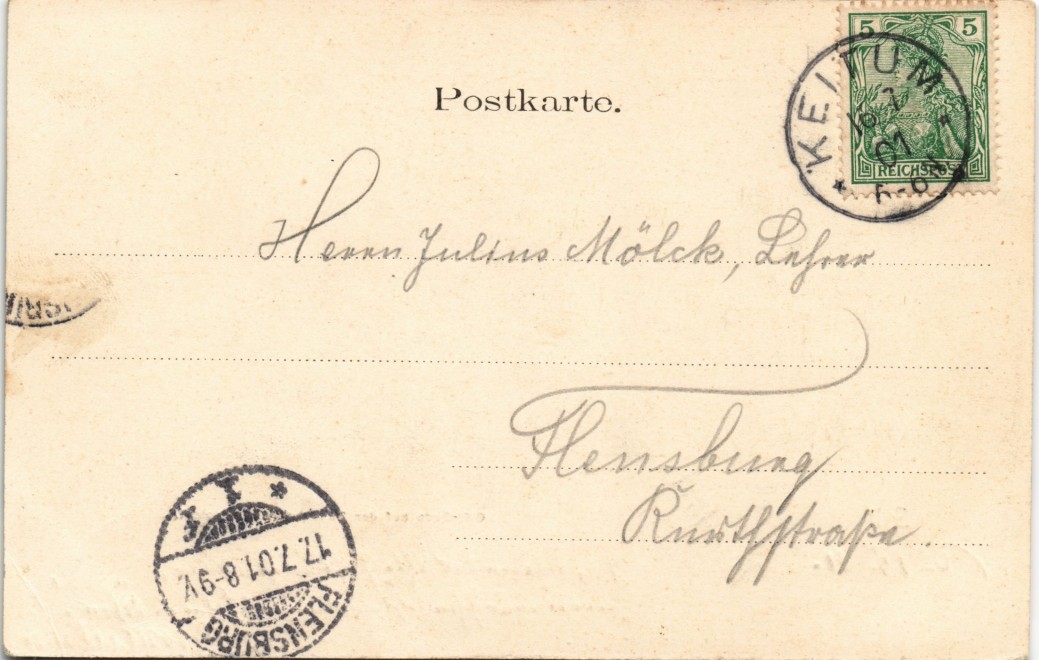 5 5
REICHSPOST
KEITUM
16 7
01
6-6N
Postkarte.
Herrn Julius Mölck, Lehrer
Flensburg
Kurthstraße.
17.7.01.8-9V.
FLENSBURG